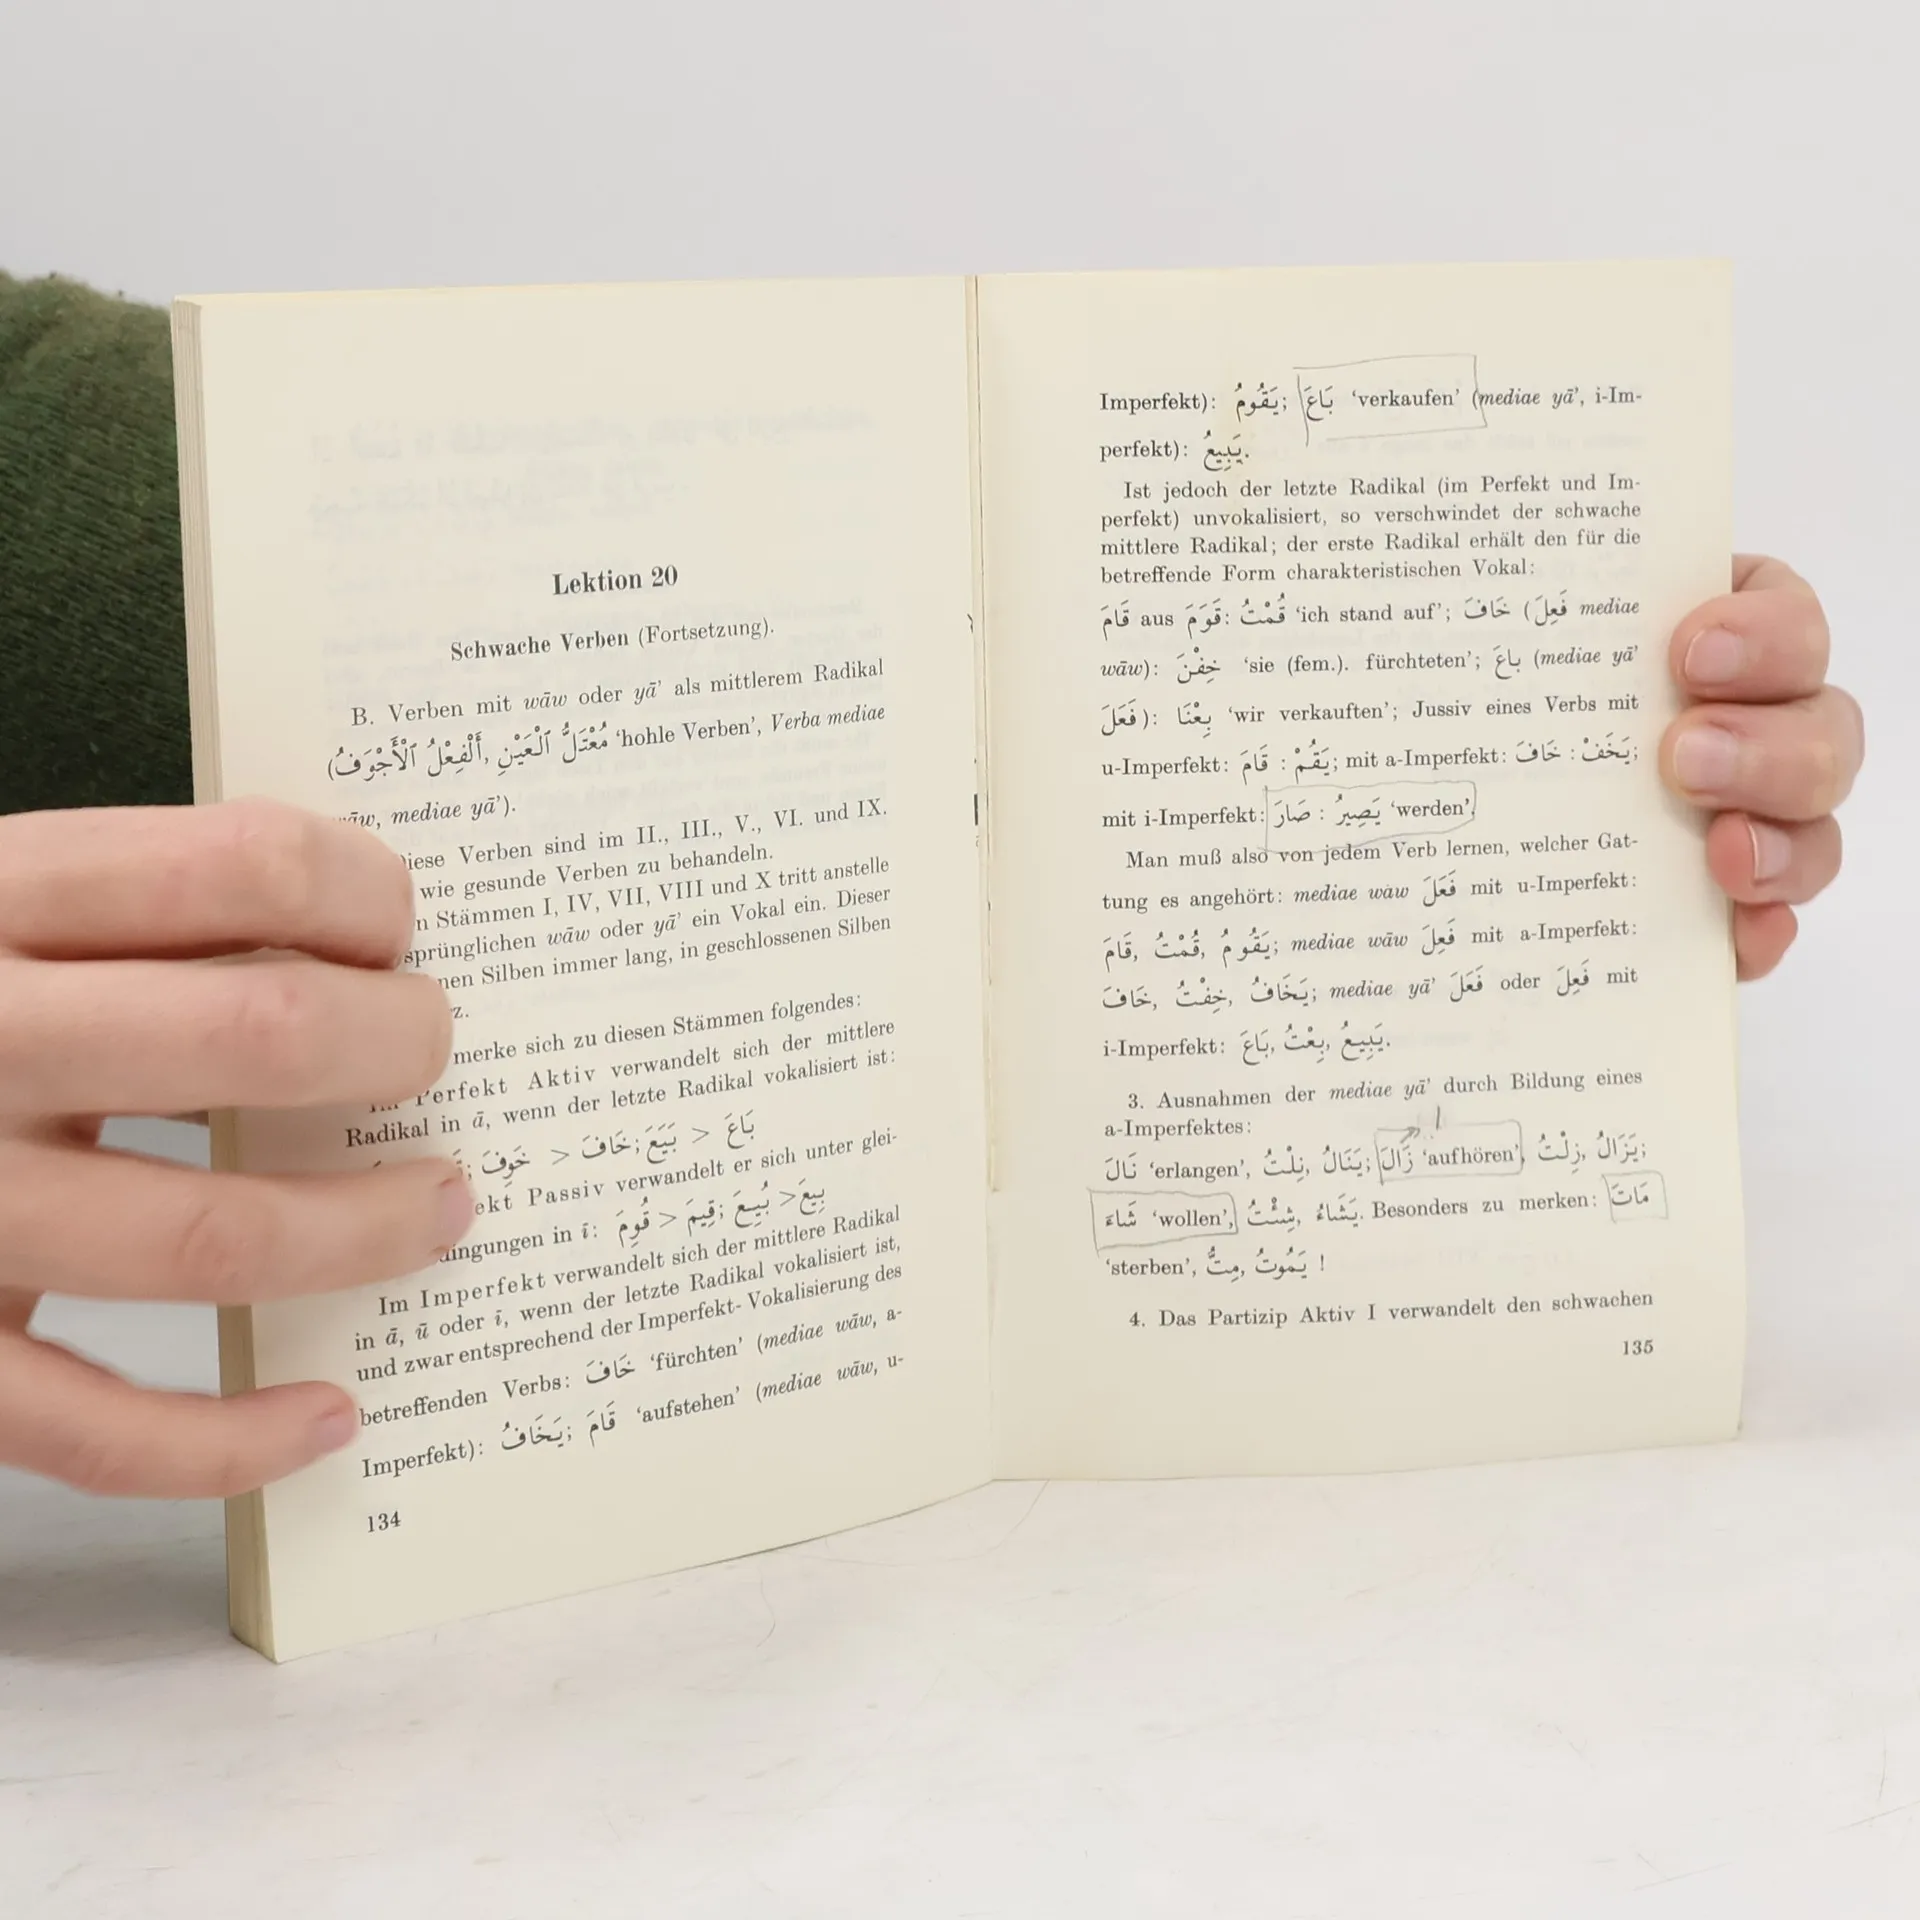 Lektion 20
Schwache Verben (Fortsetzung).
B. Verben mit wāw oder yā’ als mittlerem Radikal
(اَلْفِعْلُ ٱلْأَجْوَفُ, مُعْتَلُّ ٱلْعَيْنِ ‘hohle Verben’, Verba mediae
mediae yā’).
Verben sind im II., III., V., VI. und IX.
wie gesunde Verben zu behandeln.
Stämmen I, IV, VII, VIII und X tritt anstelle
wāw oder yā’ ein Vokal ein. Dieser
Silben immer lang, in geschlossenen Silben
merke sich zu diesen Stämmen folgendes:
Perfekt Aktiv verwandelt sich der mittlere
Radikal in ā, wenn der letzte Radikal vokalisiert ist:
خَوِفَ > خَافَ; بَيَعَ > بَاعَ
Passiv verwandelt er sich unter glei-
in ī: قُوِمَ > قِيمَ; بُيِعَ > بِيعَ
Im Imperfekt verwandelt sich der mittlere Radikal
in ā, ū oder ī, wenn der letzte Radikal vokalisiert ist,
und zwar entsprechend der Imperfekt-Vokalisierung des
betreffenden Verbs: خَافَ ‘fürchten’ (mediae wāw, a-
Imperfekt): يَخَافُ; قَامَ ‘aufstehen’ (mediae wāw, u-
134
Imperfekt): يَقُومُ; بَاعَ ‘verkaufen’ (mediae yā’, i-Im-
perfekt): يَبِيعُ.
Ist jedoch der letzte Radikal (im Perfekt und Im-
perfekt) unvokalisiert, so verschwindet der schwache
mittlere Radikal; der erste Radikal erhält den für die
betreffende Form charakteristischen Vokal:
قَامَ aus قَوَمَ: قُمْتُ ‘ich stand auf’; خَافَ (فَعِلَ mediae
wāw): خِفْنَ ‘sie (fem.). fürchteten’; باعَ (mediae yā’
فَعَلَ): بِعْنَا ‘wir verkauften’; Jussiv eines Verbs mit
u-Imperfekt: قَامَ : يَقُمْ; mit a-Imperfekt: خَافَ : يَخَفْ;
mit i-Imperfekt: صَارَ : يَصِيرُ ‘werden’.
Man muß also von jedem Verb lernen, welcher Gat-
tung es angehört: mediae wāw فَعَلَ mit u-Imperfekt:
قَامَ, قُمْتُ, يَقُومُ; mediae wāw فَعِلَ mit a-Imperfekt:
خَافَ, خِفْتُ, يَخَافُ; mediae yā’ فَعَلَ oder فَعِلَ mit
i-Imperfekt: بَاعَ, بِعْتُ, يَبِيعُ.
3. Ausnahmen der mediae yā’ durch Bildung eines
a-Imperfektes:
نَالَ ‘erlangen’, نِلْتُ, يَنَالُ; زَالَ ‘aufhören’, زِلْتُ, يَزَالُ;
شَاءَ ‘wollen’, شِئْتُ, يَشَاءُ. Besonders zu merken: مَاتَ
‘sterben’, مِتُّ, يَمُوتُ !
4. Das Partizip Aktiv I verwandelt den schwachen
135